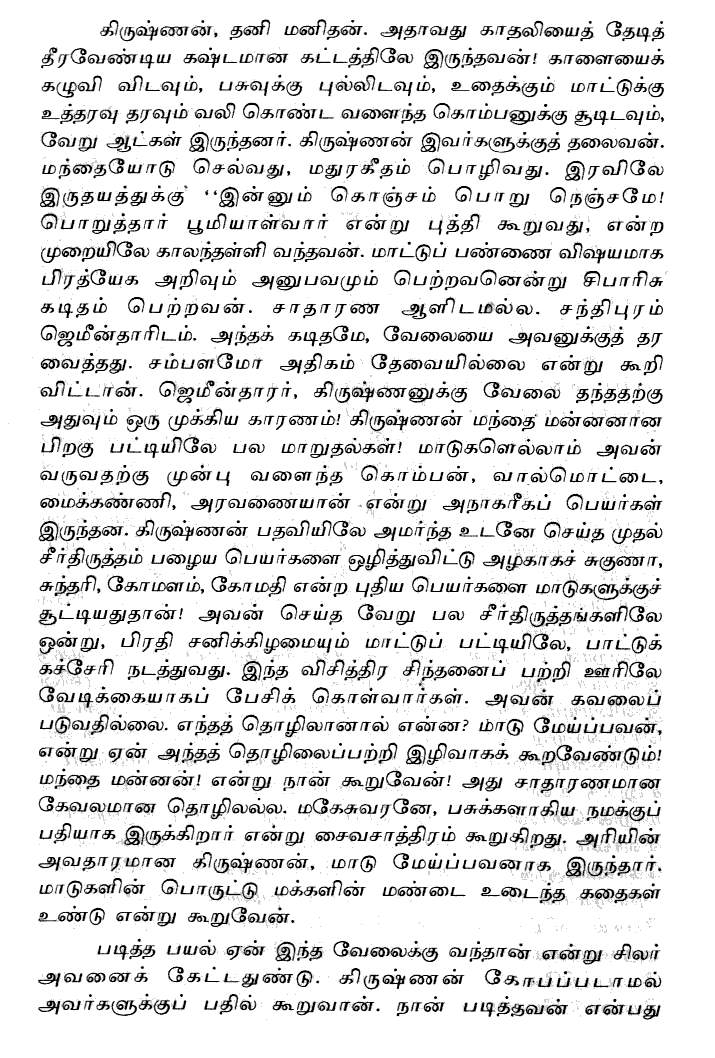 கிருஷ்ணன், தனி மனிதன். அதாவது காதலியைத் தேடித்
தீரவேண்டிய கஷ்டமான கட்டத்திலே இருந்தவன்! காளையைக்
கழுவி விடவும், பசுவுக்கு புல்லிடவும், உதைக்கும் மாட்டுக்கு
உத்தரவு தரவும் வலி கொண்ட வளைந்த கொம்பனுக்கு சூடிடவும்,
வேறு ஆட்கள் இருந்தனர். கிருஷ்ணன் இவர்களுக்குத் தலைவன்.
மந்தையோடு செல்வது, மதுரகீதம் பொழிவது. இரவிலே
இருதயத்துக்கு ‘‘இன்னும் கொஞ்சம் பொறு நெஞ்சமே!
பொறுத்தார் பூமியாள்வார் என்று புத்தி கூறுவது, என்ற
முறையிலே காலந்தள்ளி வந்தவன். மாட்டுப் பண்ணை விஷயமாக
பிரத்யேக அறிவும் அனுபவமும் பெற்றவனென்று சிபாரிசு
கடிதம் பெற்றவன். சாதாரண ஆளிடமல்ல. சந்திபுரம்
ஜெமீன்தாரிடம். அந்தக் கடிதமே, வேலையை அவனுக்குத் தர
வைத்தது. சம்பளமோ அதிகம் தேவையில்லை என்று கூறி
விட்டான். ஜெமீன்தாரர், கிருஷ்ணனுக்கு வேலை தந்ததற்கு
அதுவும் ஒரு முக்கிய காரணம்! கிருஷ்ணன் மந்தை மன்னனான
பிறகு பட்டியிலே பல மாறுதல்கள்! மாடுகளெல்லாம் அவன்
வருவதற்கு முன்பு வளைந்த கொம்பன், வால்மொட்டை,
மைக்கண்ணி, அரவணையான் என்று அநாகரீகப் பெயர்கள்
இருந்தன. கிருஷ்ணன் பதவியிலே அமர்ந்த உடனே செய்த முதல்
சீர்திருத்தம் பழைய பெயர்களை ஒழித்துவிட்டு அழகாகச் சுகுணா,
சுந்தரி, கோமளம், கோமதி என்ற புதிய பெயர்களை மாடுகளுக்குச்
சூட்டியதுதான்! அவன் செய்த வேறு பல சீர்திருத்தங்களிலே
ஒன்று, பிரதி சனிக்கிழமையும் மாட்டுப் பட்டியிலே, பாட்டுக்
கச்சேரி நடத்துவது. இந்த விசித்திர சிந்தனைப் பற்றி ஊரிலே
வேடிக்கையாகப் பேசிக் கொள்வார்கள். அவன் கவலைப்
படுவதில்லை. எந்தத் தொழிலானால் என்ன? மாடு மேயப்பவன்,
என்று ஏன் அந்தத் தொழிலைப்பற்றி இழிவாகக் கூறவேண்டும்!
மந்தை மன்னன்! என்று நான் கூறுவேன்! அது சாதாரணமான
கேவலமான தொழிலல்ல. மகேசுவரனே, பசுக்களாகிய நமக்குப்
பதியாக இருக்கிறார் என்று சைவசாத்திரம் கூறுகிறது. அரியின்
அவதாரமான கிருஷ்ணன், மாடு மேய்ப்பவனாக இருந்தார்.
மாடுகளின் பொருட்டு மக்களின் மண்டை உடைந்த கதைகள்
உண்டு என்று கூறுவேன்.
படித்த பயல் ஏன் இந்த வேலைக்கு வந்தான் என்று சிலர்
அவனைக் கேட்டதுண்டு. கிருஷ்ணன் கோபப்படாமல்
அவர்களுக்குப் பதில் கூறுவான். நான் படித்தவன் என்பது